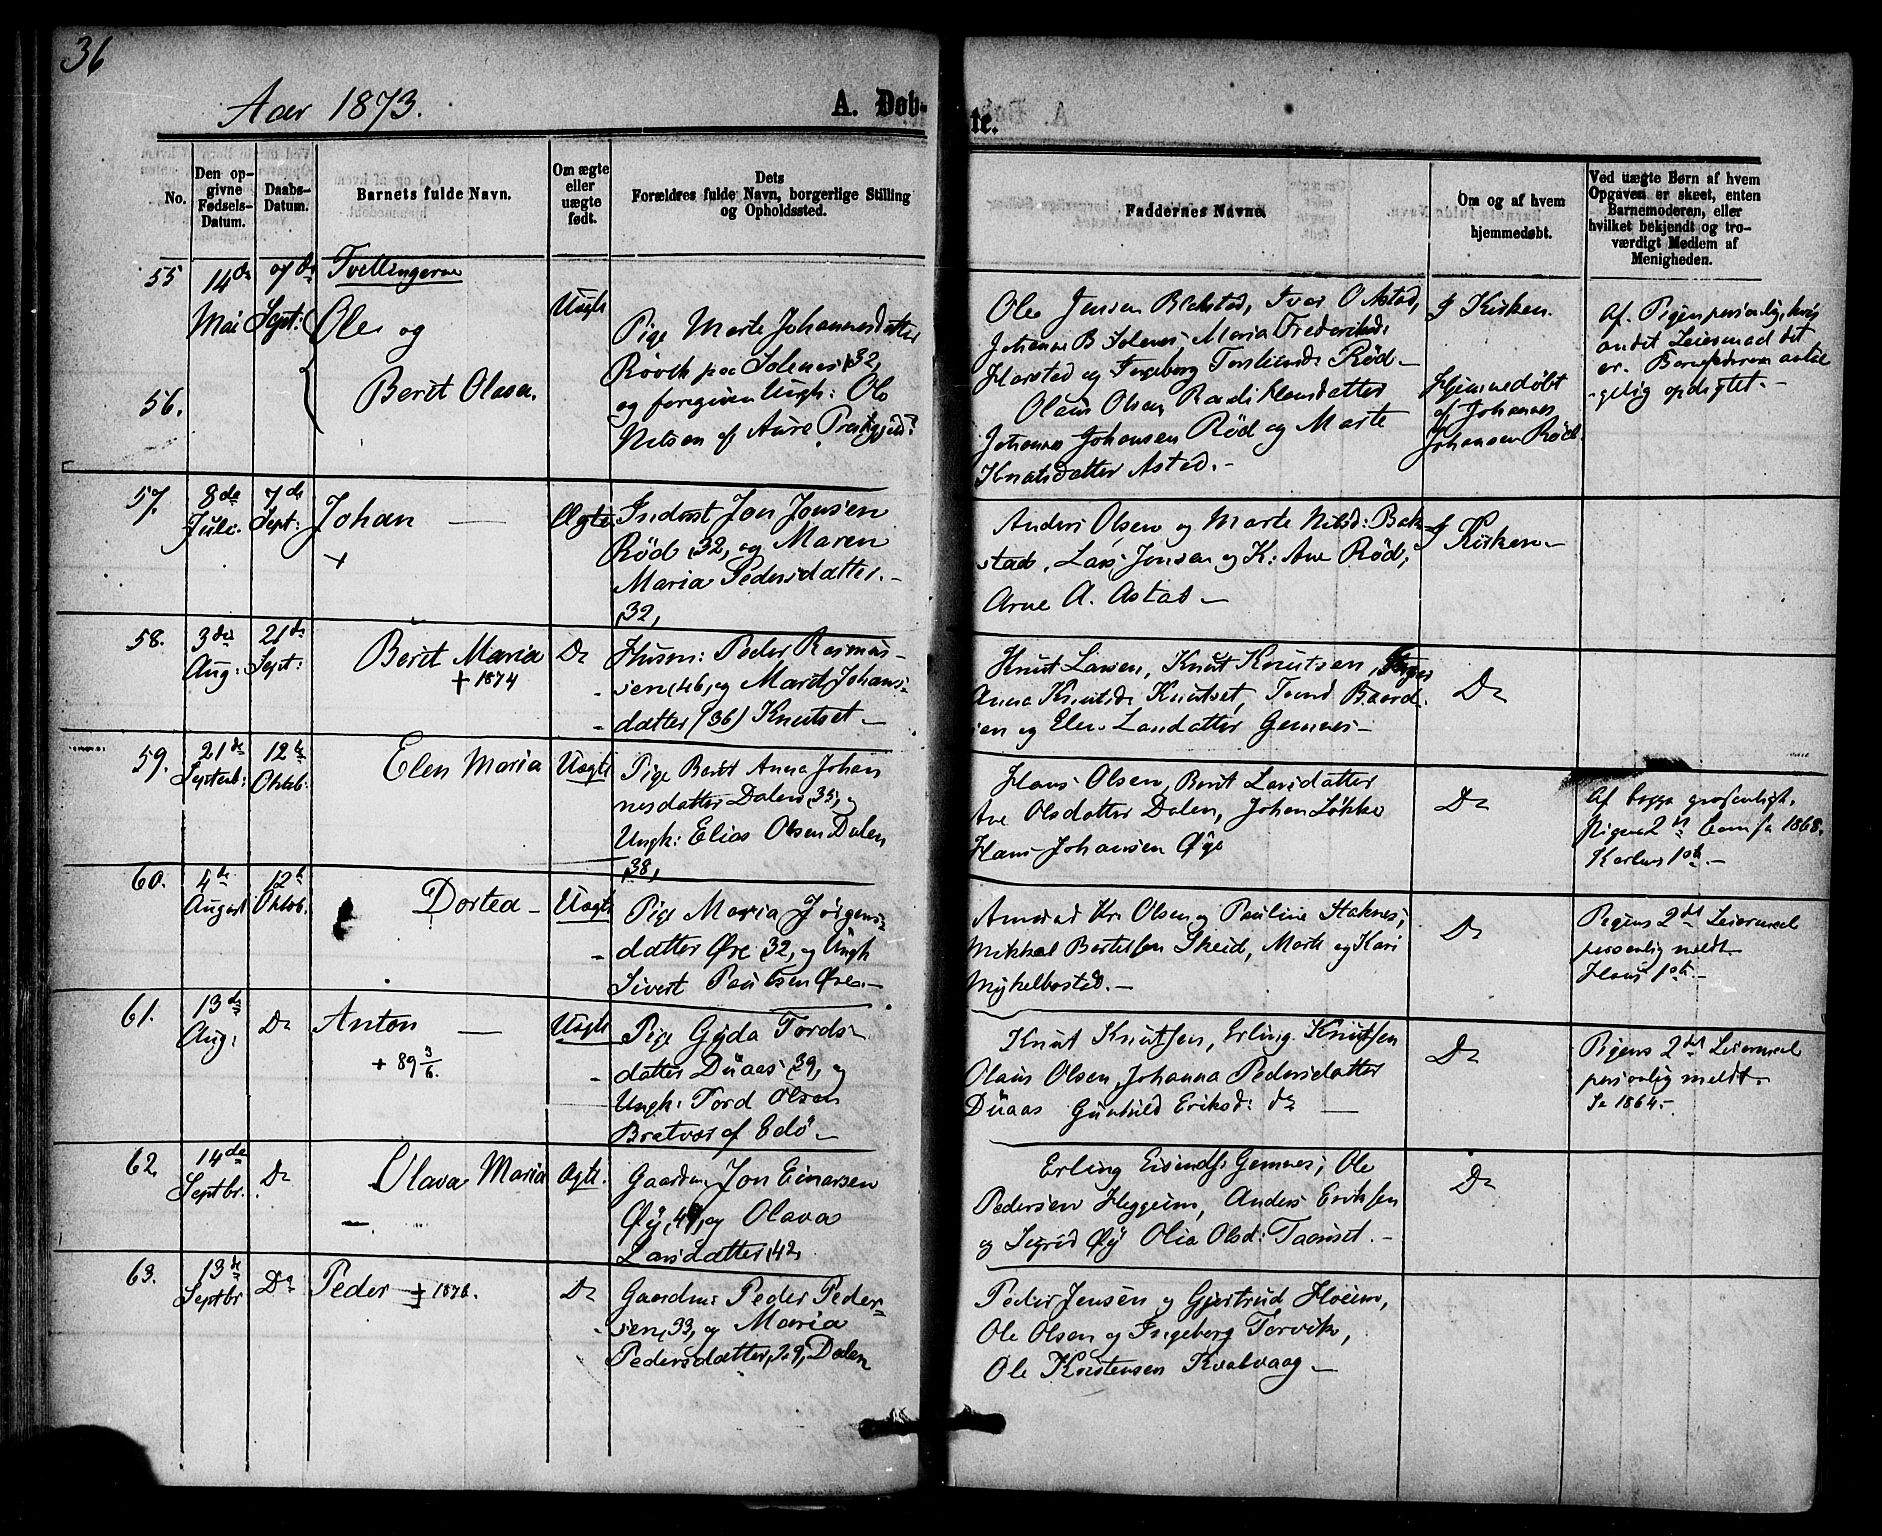 36
Aar 1873.
A. Døb-
te.
No.
Den op-
givne
Fødsels-
Datum.
Daabs-
Datum.
Barnets fulde Navn.
Om ægte
eller
uægte
født.
Dets
Forældres fulde Navn, borgerlige Stilling
og Opholdssted.
Faddernes Navne.
Om og af hvem
hjemmedøbt.
Ved uægte Børn af hvem
Opgaven er skeet, enten
Barnemoderen, eller
hvilket bekjendt og tro-
værdigt Medlem af
Menigheden.
55
14de
Mai
7de
Sept:
Tvillingerne
Ole og
56.
Berit Olava.
Uægte
Pige Marte Johannesdatter
paa Solenes, 32,
og foregiven Ungk: Ole
Nilsen af Aure Præstegjeld.
Ole Jensen Bakstad, Iver O Astad,
Johanne B Solenes, Maria Frederiksd:
Harstad og Ingeborg Rød -
Olaus Olsen, Randi Hansdatter
Johannes Johansen Rød og Marte
Knutsdatter Astad. -
I Kirken.
Hjemmedøbt
af Johannes
Johansen Rød.
Af Pigen personlig, hvis
andet Leiermaal det
er. Barnefaderen
opdigtet. -
57.
8de
Juli.
7de
Sept:
Johan
+
Ægte
Inderst Jon Jonsen
Rød, 32, og Maren
Maria Pedersdatter. -
32,
Anders Olsen og Marte Nilsd: Bak-
stad, Lars Jonsen og K: Ane Rød,
Arne A. Astad -
I Kirken -
58.
3die
Aug:
21de
Sept:
Berit Maria
+ 1874
Do
Husm: Peder Rasmus-
sen, 46, og Marit Johans-
datter (36) Knutset -
Knut Larsen, Knut Knutsen,
Anna Knutsd: Knutset, Tord Baard-
sen og Elen Larsdatter Gemnes -
Do
59.
21de
Septemb:
12te
Oktob.
Elen Maria
Uægte
Pige Berit Anna Johan
nesdatter Dalen, 35, og
Ungk: Elias Olsen Dalen
38,
Hans Olsen, Berit Larsdatter
Ane Olsdatter Dalen, Johan Løkke
Hans Johansen Øye
Do
Af begge
Pigens 2det Barn fra 1868.
Karlens 1ste. -
60.
4de
August
12te
Oktob.
Dortea -
Uægte
Pige Maria Jørgens-
datter Øre, 32, og Ungk
Sivert Paulsen Øre. -
Kr: Olsen og Pauline Staknes,
Mikkel Bertelsen Skeid, Marte og Kari
Myklebostad. -
Do
Pigens 2det Leiermaal
personlig meldt.
Hans 1ste. -
61.
13de
Aug:
Do
Anton
+ 89 3/6.
Uægte
Pige Gyda Tords-
datter Duaas, 39, og
Ungk: Tord Olsen
Bratvær af Edø -
Knut Knutsen, Erling Knutsen
Olaus Olsen, Johanna Pedersdatter
Duaas Gunhild Eriksd: do -
Do
Pigens 2det Leiermaal
personlig meldt.
Fra 1864. -
62.
14de
Septbr.
Do
Olava Maria
Ægte.
Gaardm: Jon Einarsen
Øy, 49, og Olava
Larsdatter, 42,
Erling Gemnes, Ole
Pedersen Heggeim, Anders Eriksen
og Sigrid Øy Olia Olsd: Taanset. -
Do
63.
13de
Septbr
Do
Peder + 1876.
Do
Gaardm: Peder Peder-
sen, 33, og Maria
Pedersdatter, 29, Dalen
Peder Jensen og Gjertrud Hoeim,
Ole Olsen og Ingeborg Torvik,
Ole Kristensen Kvalvaag -